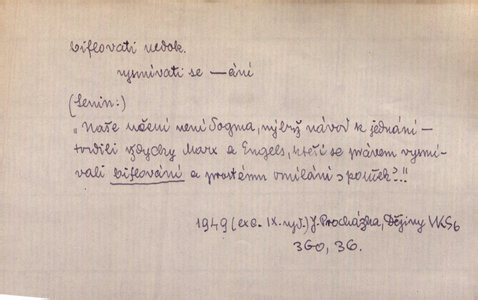 biflovati nedok.
vysmívati se —ání
(Lenin:)
"Naše učení není dogma, nýbrž návod k jednání —
tvrdili vždycky Marx a Engels, kteří se právem vysmí-
vali biflování a prostému omílání „pouček"!"
1949 (exc. IX. vyd.) J. Procházka, Dějiny VKSb
3G0, 36.